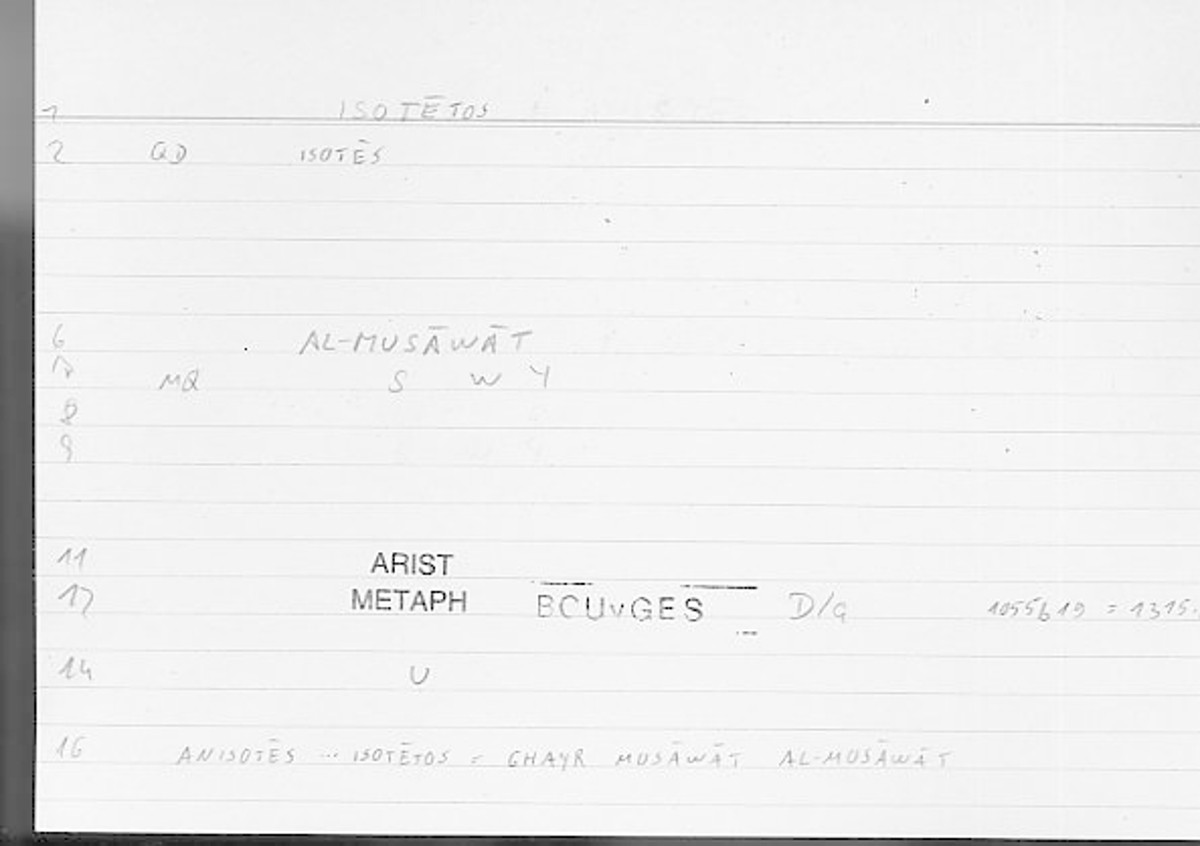 1 ISOTĒTOS
2 GD ISOTĒS
6 AL-MUSĀWĀT
7 MQ S W Y
8
9
11 ARIST
12 METAPH BOUYGES D/G 1055b19 = 1315.
14 U
16 ANISOTĒS ... ISOTĒTOS = GHAYR MUSĀWĀT AL-MUSĀWĀT